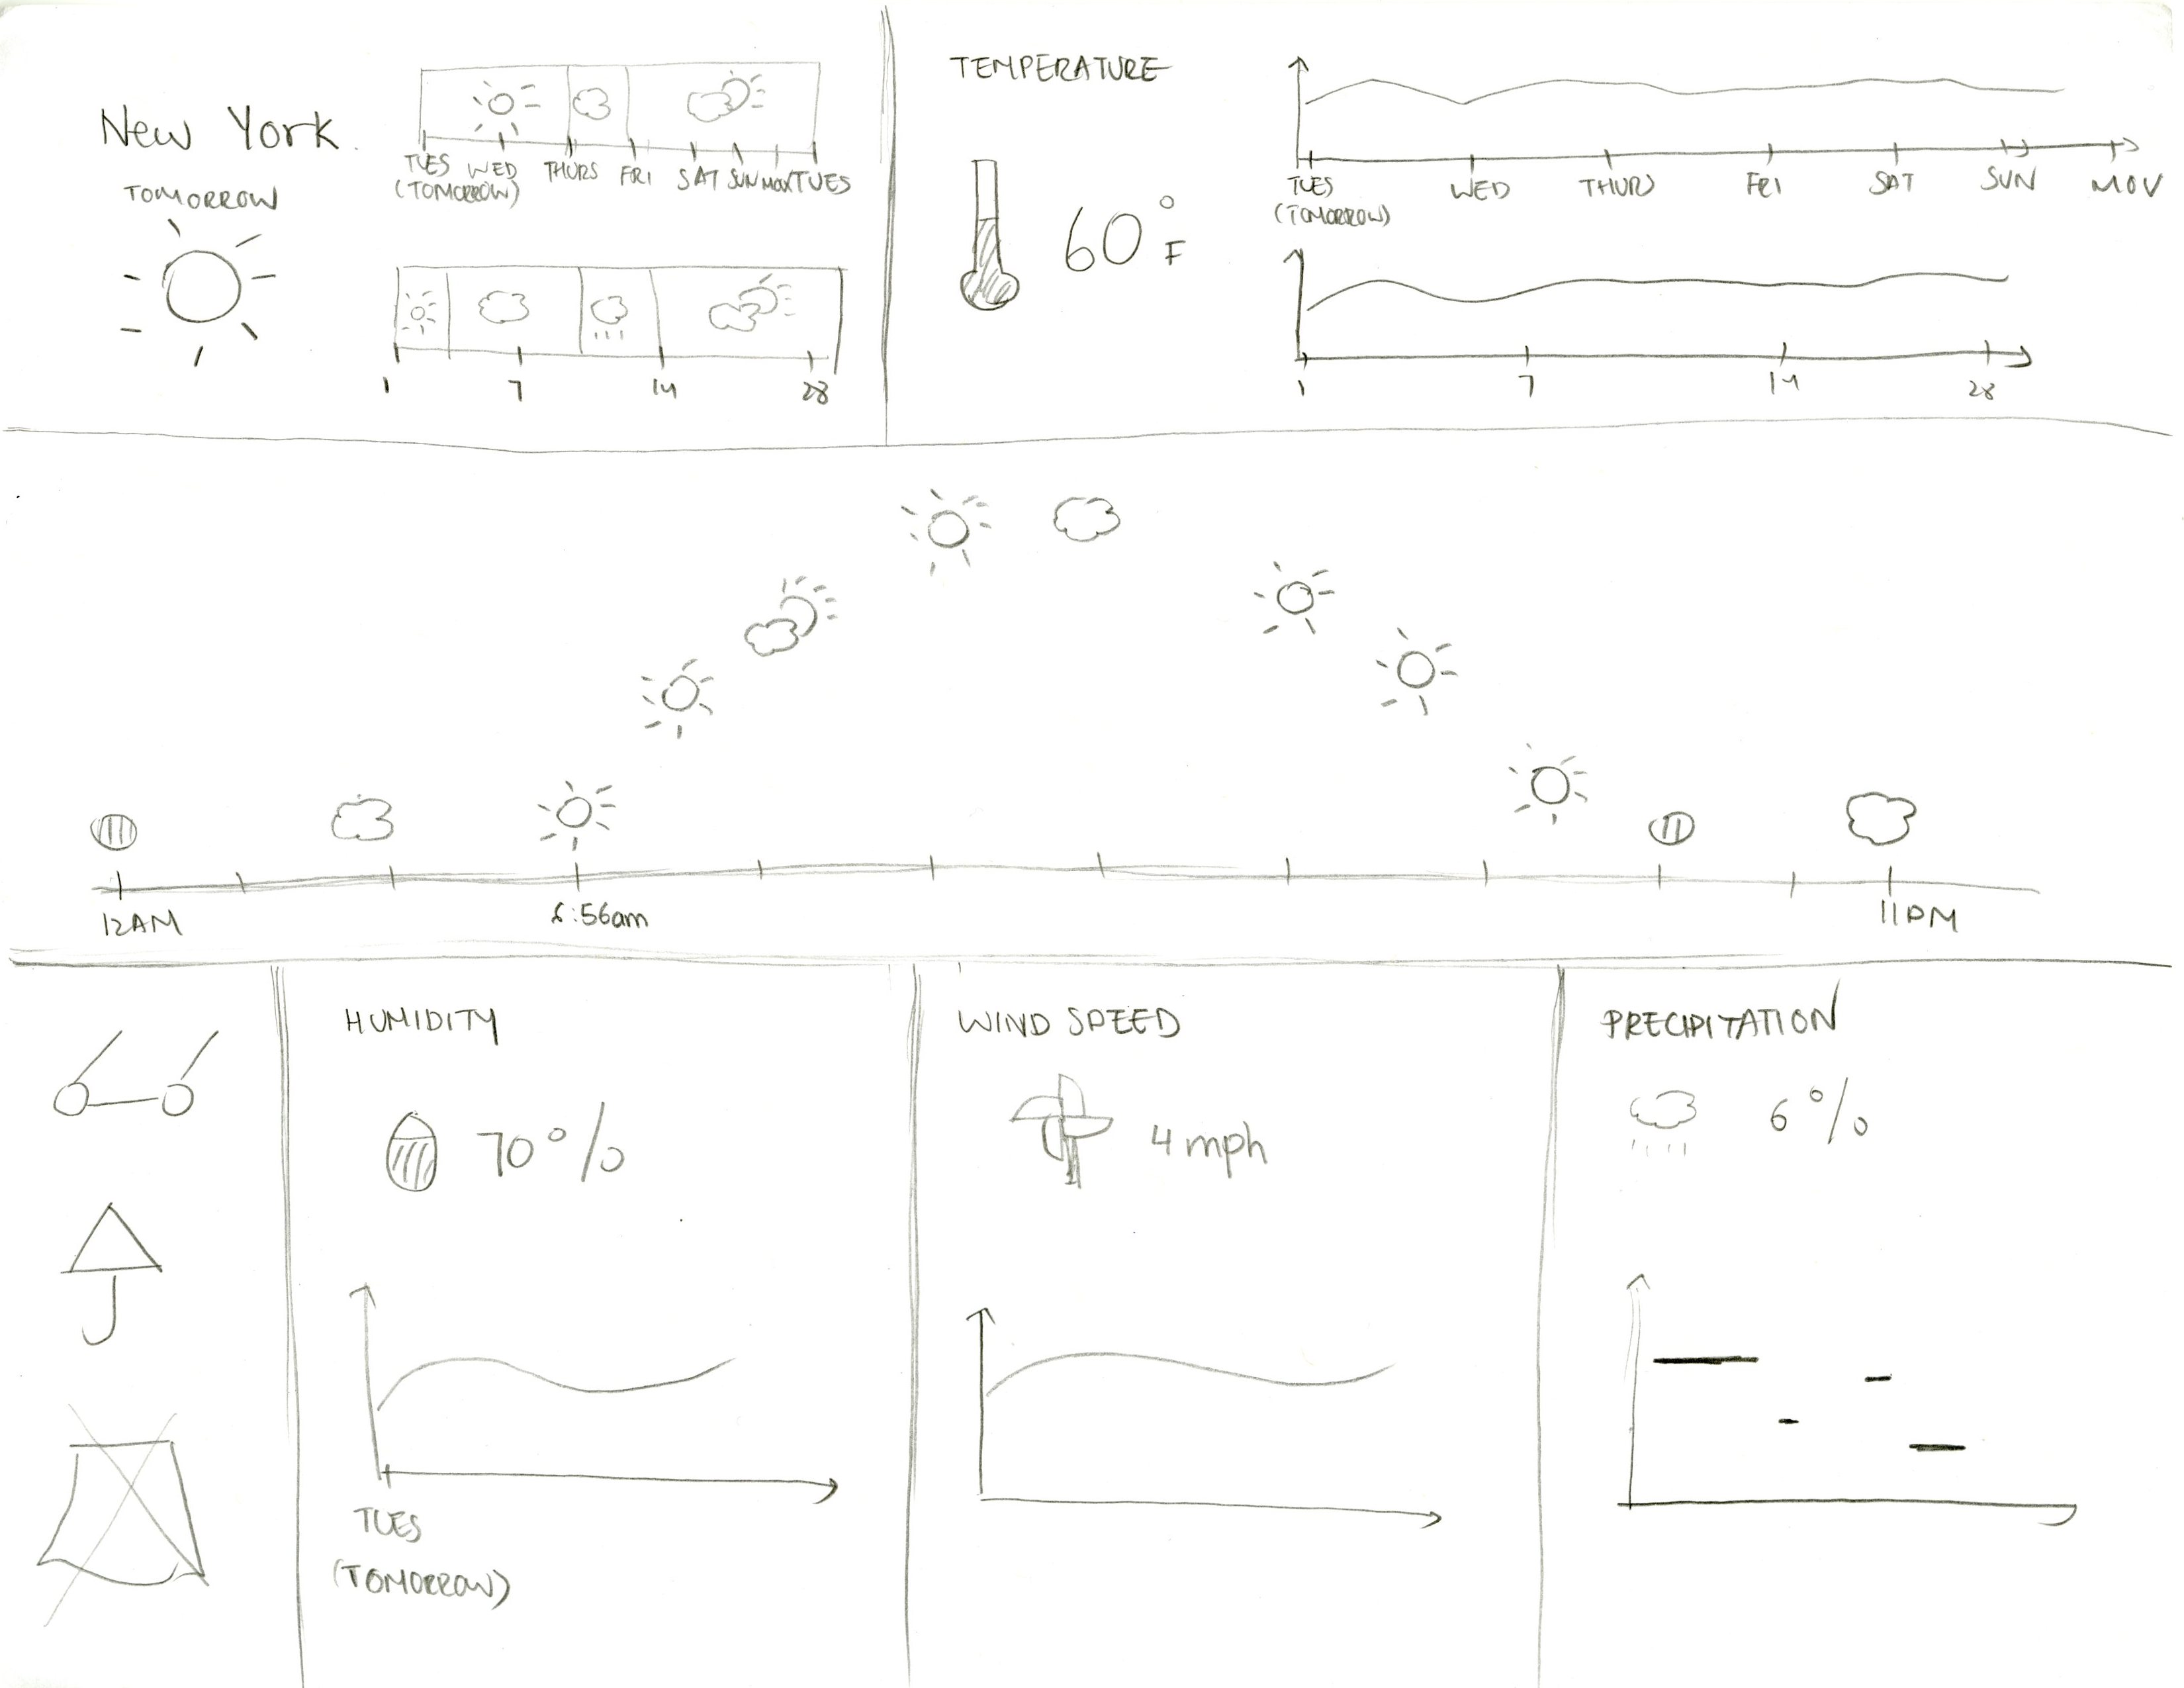 New York.
TOMORROW
TUES WED THURS FRI SAT SUN MON TUES
(TOMORROW)
1 7 14 28
TEMPERATURE
60°F
TUES WED THURS FRI SAT SUN MOV
(TOMORROW)
1 7 14 28
12AM 6:56am 11PM
HUMIDITY
70%
TUES
(TOMORROW)
WIND SPEED
4 mph
PRECIPITATION
6%